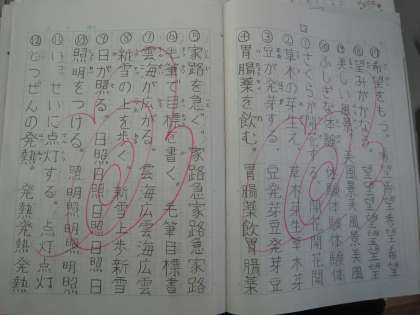 希望をもつ。希望希望希望
望みがかなう。望望望望
美しい風景。美風景美風
ふしぎな体験。体験体験体験
①さくらが開花する。開花開花開
②草木の芽生え。草木芽生草木
③豆が発芽する。豆発芽豆発芽
④胃腸薬を飲む。胃腸薬飲胃腸薬
⑤家路を急ぐ。家路急家路急家路
⑥毛筆で目標を書く。毛筆目標書
⑦雲海が広がる。雲海広雲海広
⑧新雪の上を歩く。新雪上歩新雪
⑨日が照る。日照日照日照日
⑩照明をつける。照明照明照明照
⑪いっせいに点灯する。点灯点灯
⑫とつぜんの発熱。発熱発熱発熱